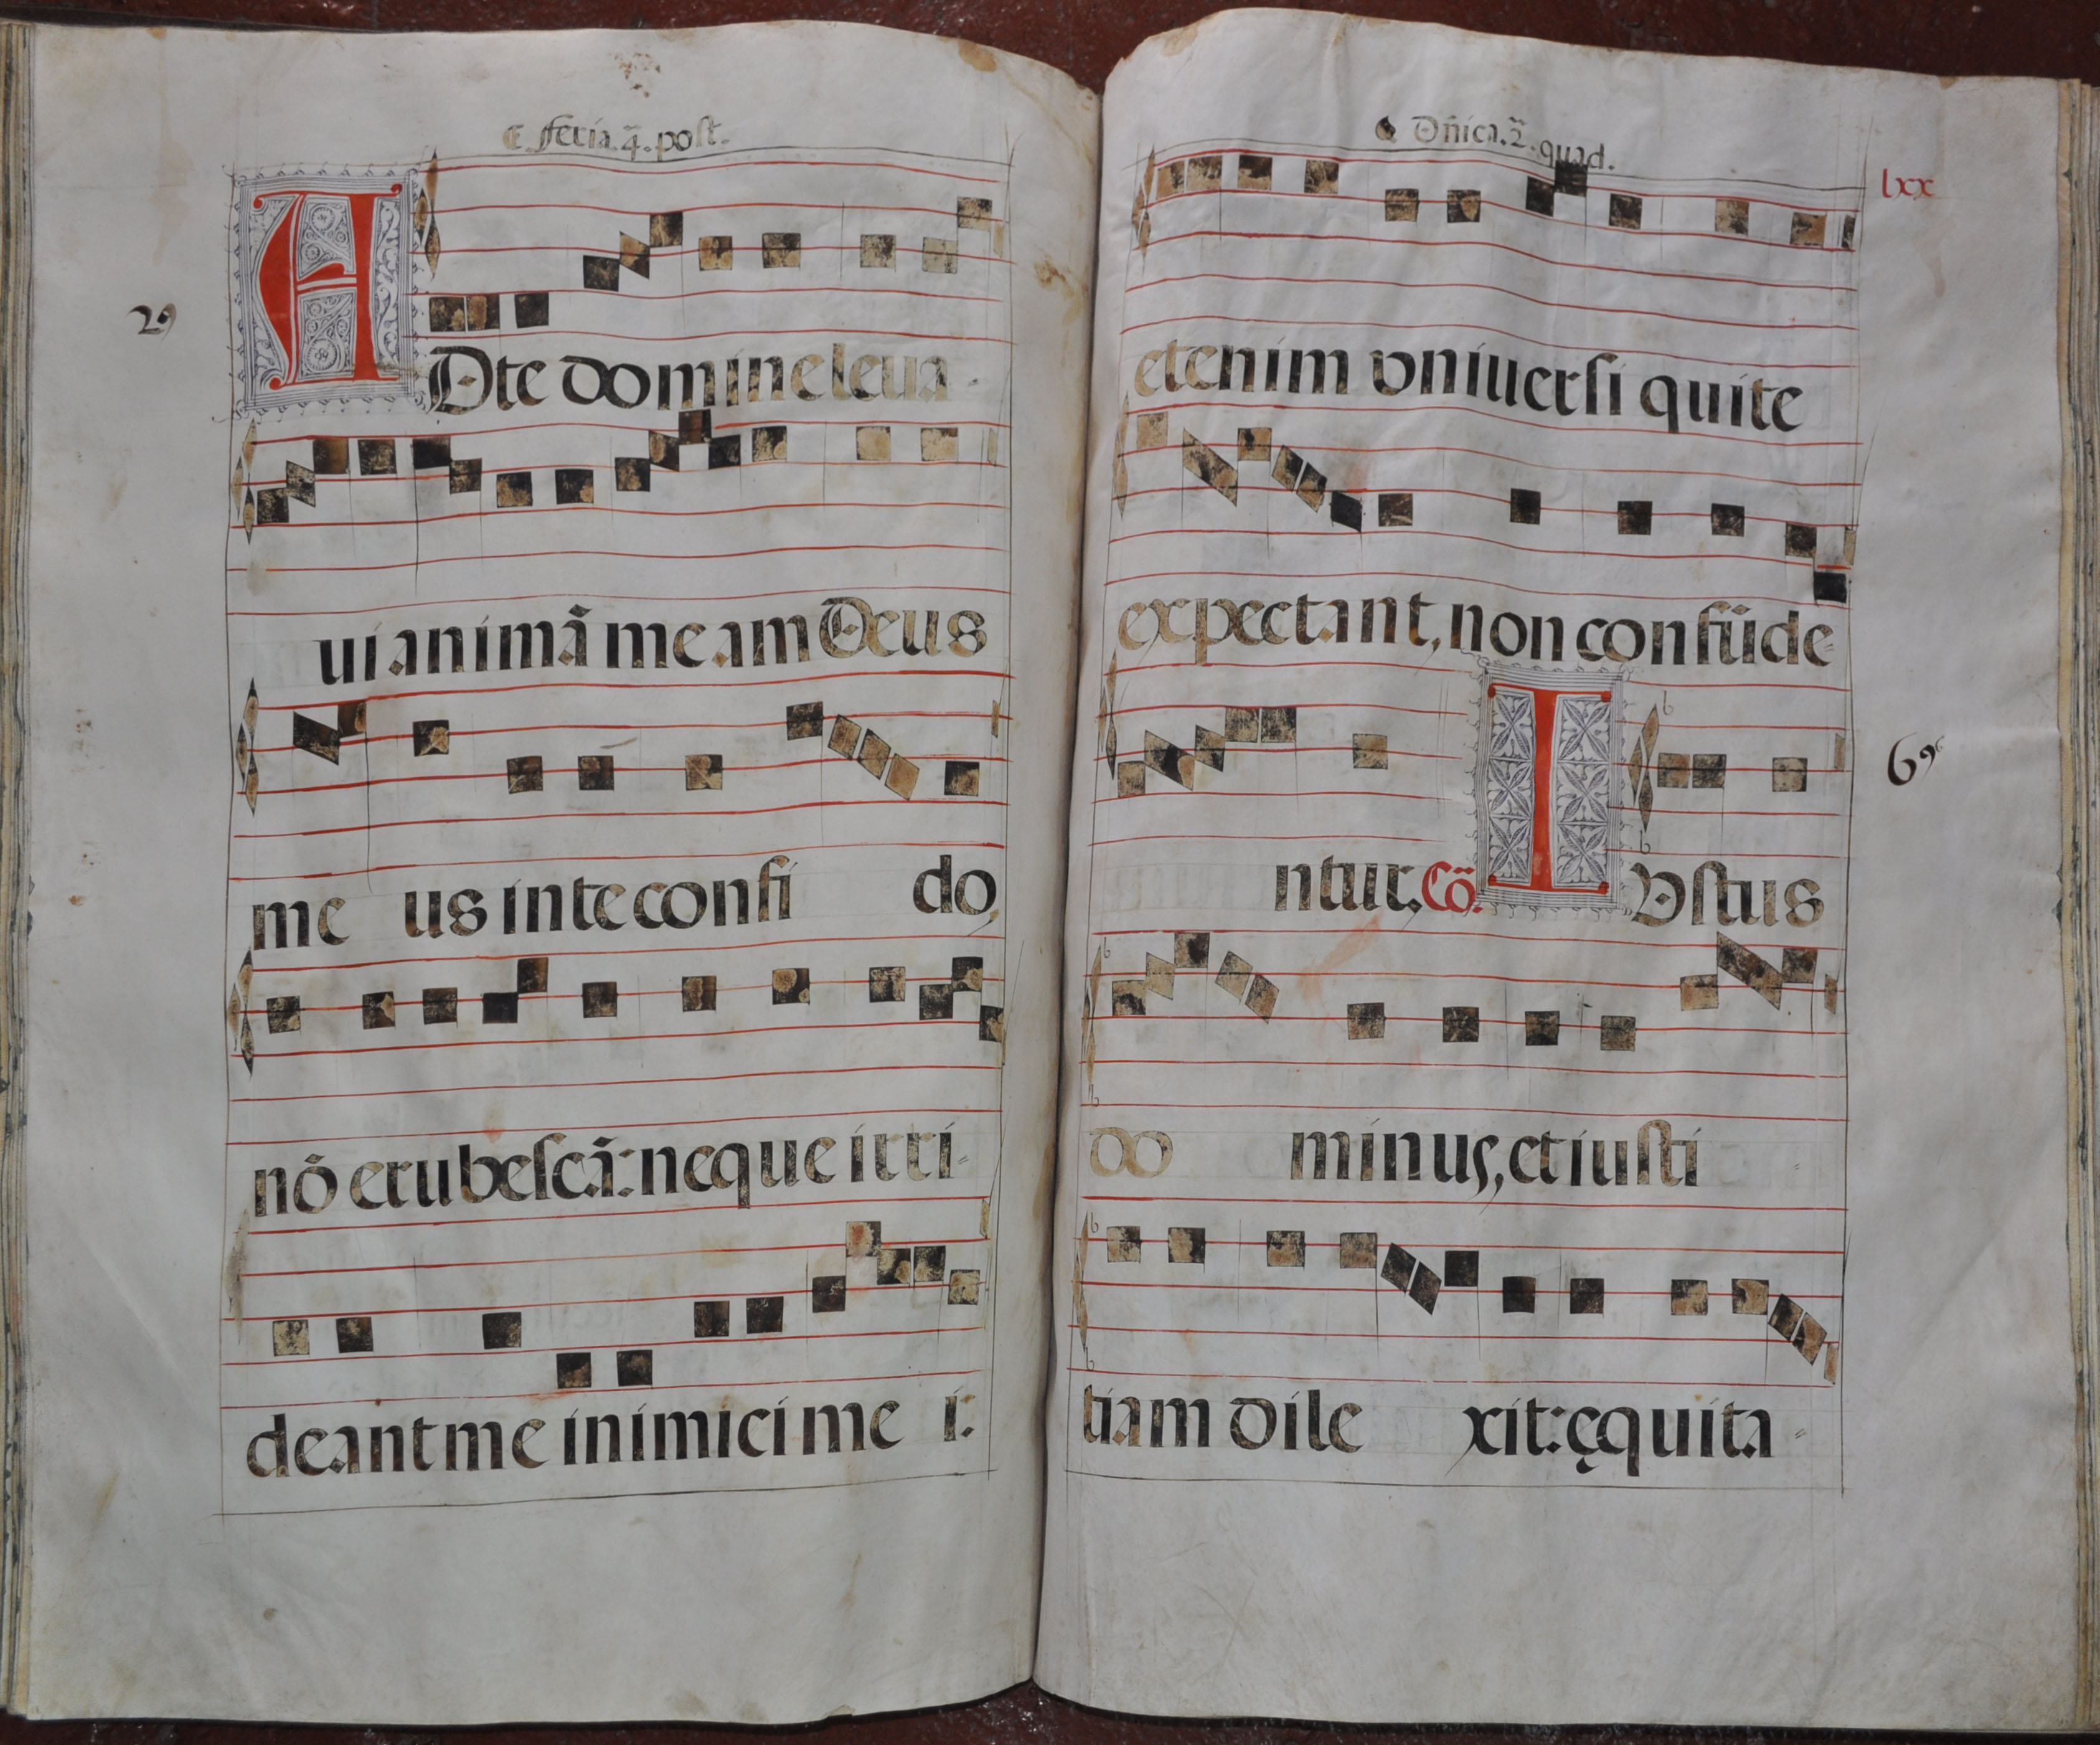 ¶ Feria .4ª. post.
29
ADte domine leua-
ui animā meam Deus
me us in te confi do,
nō erubescā: neque irri-
deant me inimici me i:
¶ Dñica .2ª. quad.
lxx
etenim vniuersi qui te
expectant, non confūde-
ntur. Cō. IVstus
69
do minus, et iusti-
tiam dile xit: ęquita-